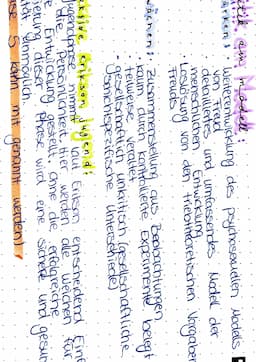 tik am Modell:
ärken:
Weiterentwicklung des psychosexuellen Modells
von Freud
detailliertes und umfassendes Modell der
menschlichen Entwicklung
Loslösung von den triebtheoretischen Vorgaben
Freuds
wächen:
Zusammenstellung aus Beobachtungen,
kaum durch kontrollierte Experimente belegt
teilweise veraltet
gesellschaftlich unkritisch (gesellschaftliche,
spezifische Unterschiede)
ektive Erikson Jugend:
Jugendphase nimmt laut Erikson entscheidend Einf
die Persönlichkeit hier werden alle Weichen für
e Entwicklung gestellt, ohne die erfolgreiche
ietung dieser Phase wird eine stabile und gesun
tität unmöglich.
ase 5 kann mit genannt werden)